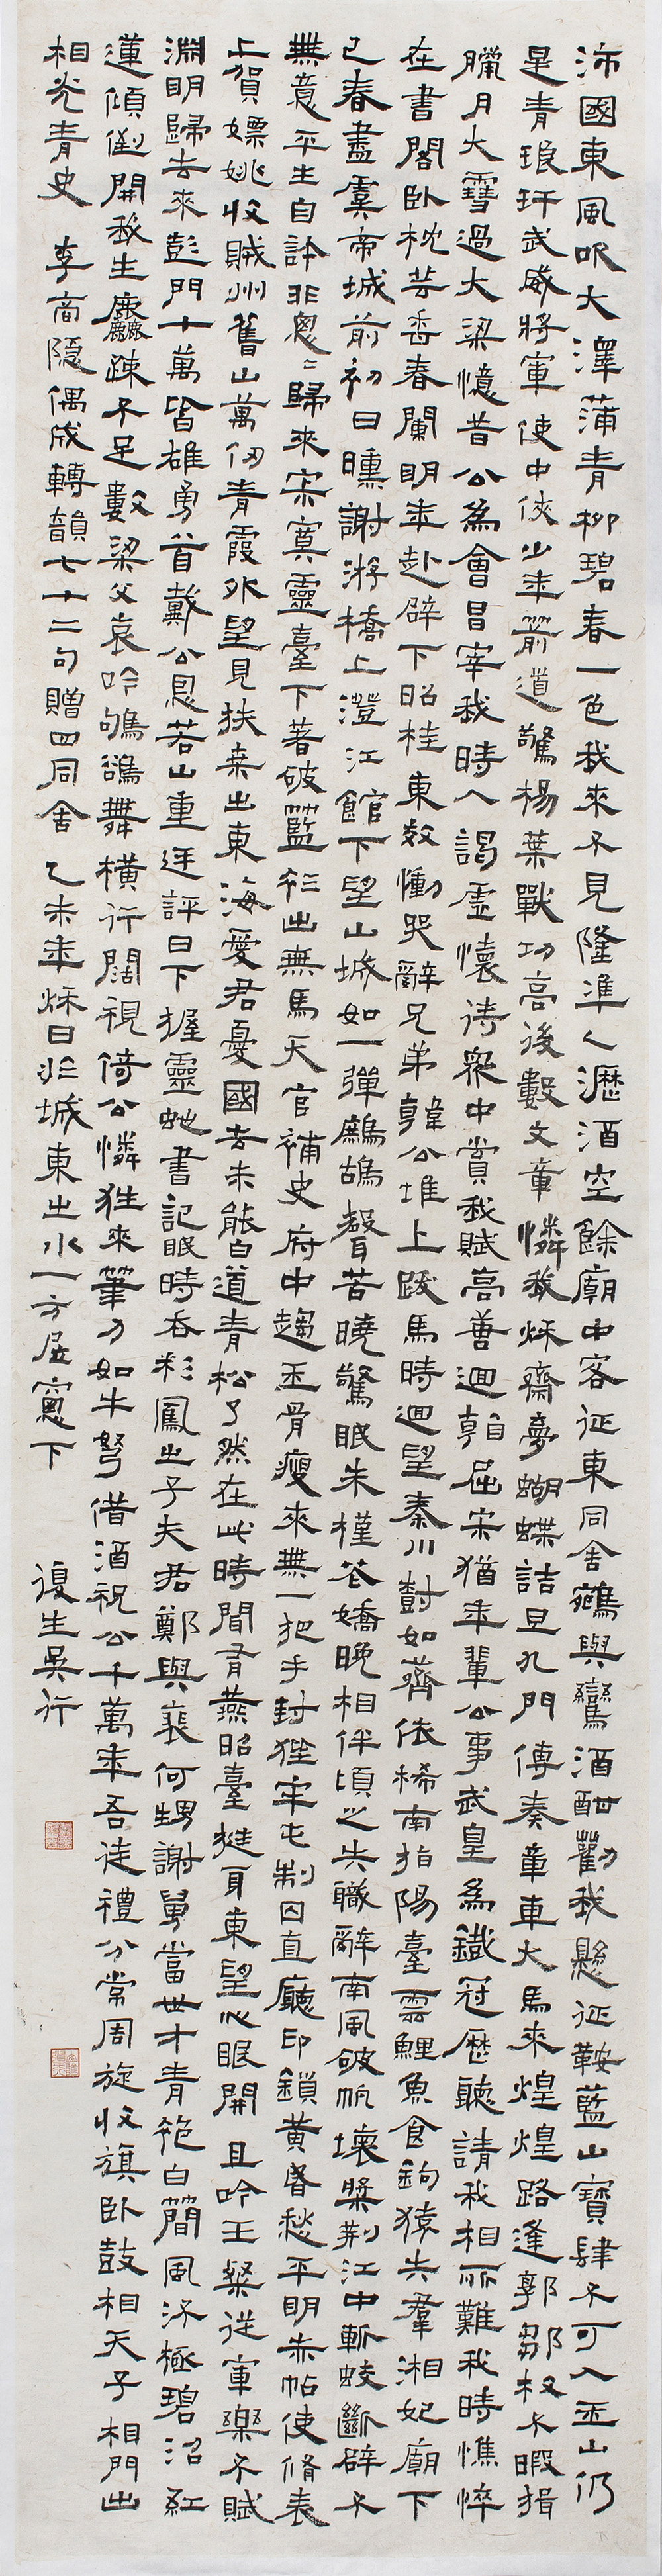 沛國東風吹大澤蒲青柳碧春一色我來不見隆準人瀝酒空餘廟中客征東同舍鴛與鸞酒酣勸我懸征鞍藍山寶肆不可入玉山仍
是青琅玕武威將軍使中俠少年箭道驚楊葉戰功高後數文章憐我秋齋夢蝴蝶詰旦九門傳奏章車大馬來煌煌路逢郭鄒枚不暇揖
臘月大雪過大梁憶昔公為會昌宰我時入謁虛懷待眾中賞我賦高善迴屈宋猶年輩公事武皇為鐵冠歷聽請我相所難我時憔悴
在書閣臥枕芸香春闌明年赴辟下昭桂東郊慟哭辭兄弟韓公堆上跋馬時迴望秦川樹如薺依稀南指陽臺雲鯉魚食鉤猿失群湘妃廟下
已春盡虞帝城前初日曛謝游橋上澄江館下望山城如一彈鷓鴣聲苦曉驚眠朱槿花嬌晚相伴頃之失職辭南風破帆壞槳荊江中斬蛟斷辟不
無意平生自許非匆匆歸來寂寞靈臺下著破藍衫出無馬天官補吏府中趨玉骨瘦來無一把手封狴牢屯制囚直廳印鎖黃昏愁平明赤帖使脩表
上賀嫖姚收賊州舊山萬仞青霞外望見扶桑出東海愛君憂國去未能白道青松了然在此時聞有燕昭臺挺身東望心眼開且吟王粲從軍樂不賦
淵明歸去來彭門十萬皆雄勇首戴公恩若山重廷評日下握靈蛇書記眠時吞彩鳳之子夫君鄭與裴何甥謝舅當世才青袍白簡風流極碧沼紅
蓮傾倒開我生麤疎不足數梁父哀吟鴝鵒舞橫行闊視倚公憐狂來筆力如牛弩借酒祝公千萬年吾徒禮分常周旋收旗臥鼓相天子相門出
相光青史 李商隱偶成轉韻七十二句贈四同舍 乙未年秋日於城東之水一方居窗下 復生吳行